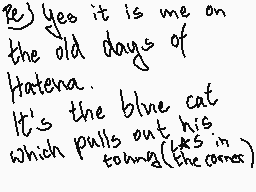 Re) yes it is me on
the old days of
Hatena.
It's the blue cat
which pulls out his
toung (as in
the corner)